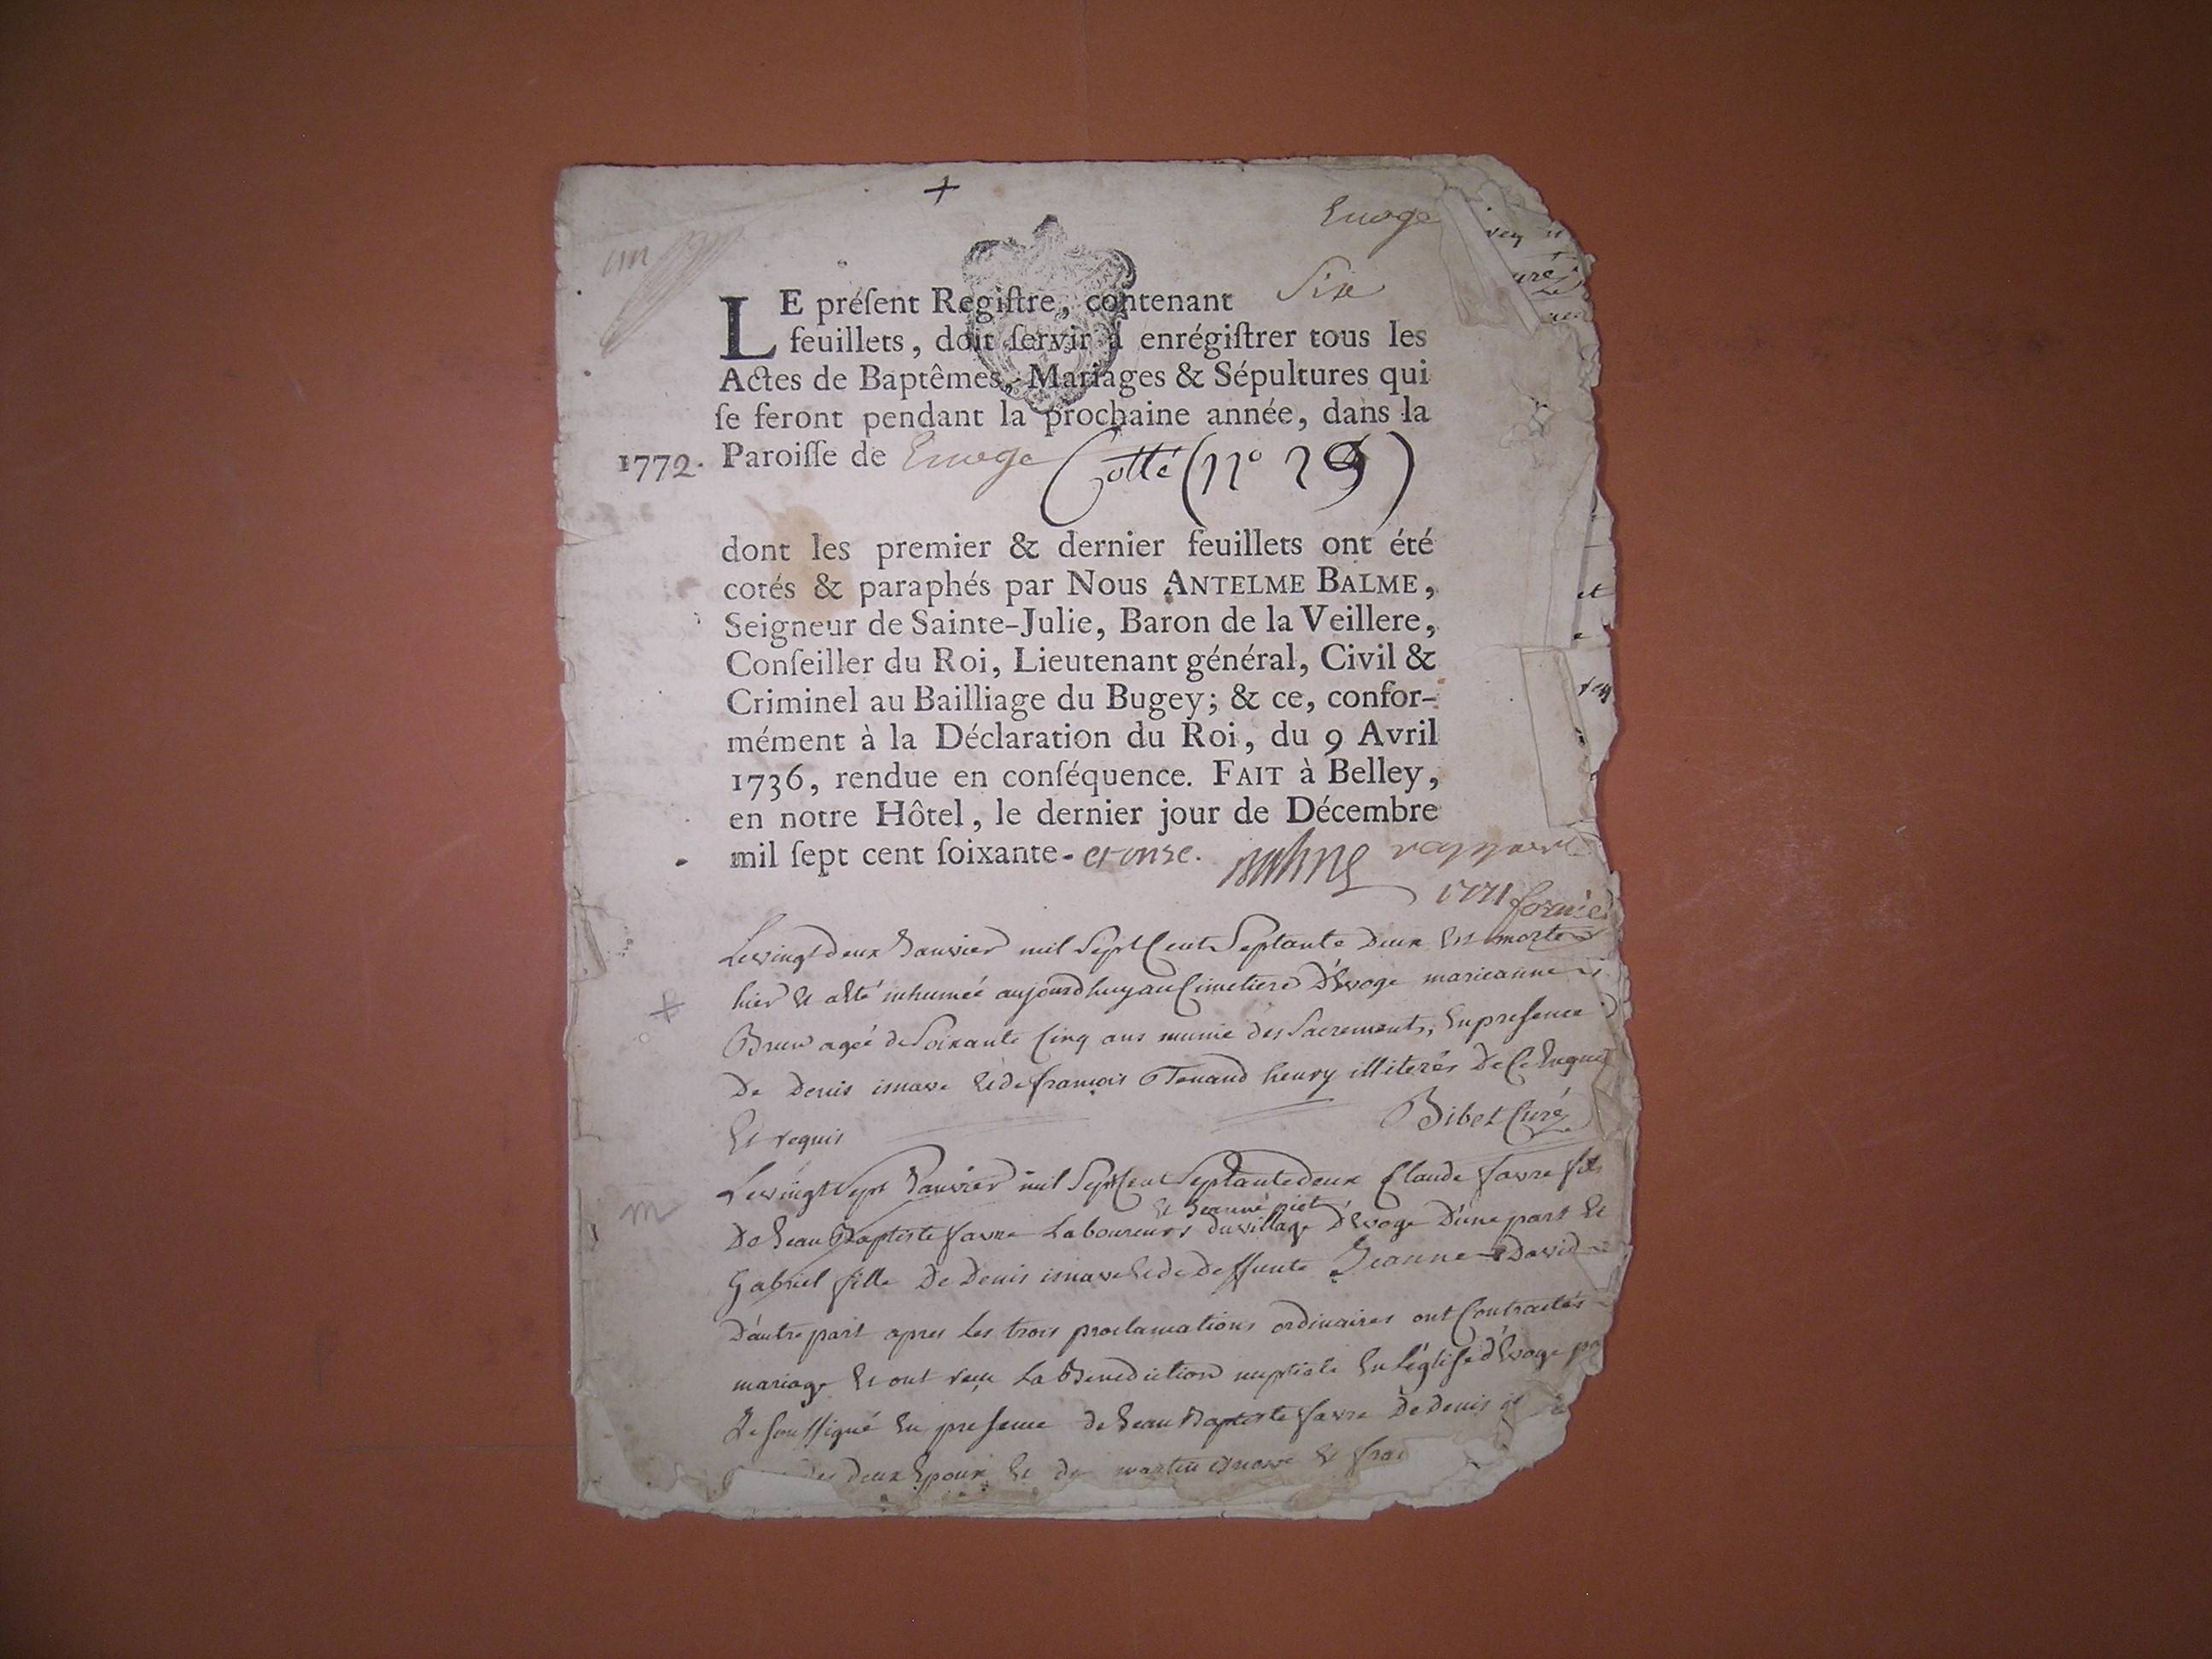 +
Evoge
un
Six
LE préſent Regiſtre, contenant
feuillets, doit ſervir à enrégiſtrer tous les
Actes de Baptêmes, Mariages & Sépultures qui
ſe feront pendant la prochaine année, dans la
1772. Paroiſſe de Evoge Cotté (n° 29)
dont les premier & dernier feuillets ont été
cotés & paraphés par Nous ANTELME BALME,
Seigneur de Sainte-Julie, Baron de la Veillere,
Conſeiller du Roi, Lieutenant général, Civil &
Criminel au Bailliage du Bugey; & ce, confor-
mément à la Déclaration du Roi, du 9 Avril
1736, rendue en conſéquence. FAIT à Belley,
en notre Hôtel, le dernier jour de Décembre
mil ſept cent ſoixante-et onze. Balme
1771
Le vingt deux Janvier mil Sept Cent Septante deux Est morte
hier et a été inhumée aujourdhuy au Cimetiere D'Evoge marieanne
agée de Soixante Cinq ans munie des Sacrements, En presence
De Denis et de françois Tenand henry illiterés De Ce Enquis
Et requis Bibet Curé
Le vingt Sept Janvier mil Sept Cent Septante deux Claude favre fils
et Jeanne
De Jean Baptiste favre Laboureurs du village D'Evoge D'une part Et
Gabriel fille De Denis et de Deffunte Jeanne David
D'autre part apres Les trois proclamations ordinaires ont Contractés
mariage Et ont reçu La Benediction nuptiale En L'église d'Evoge
Le soussigné En presence de Jean Baptiste favre De Denis
des Deux Epoux Et De martin Et